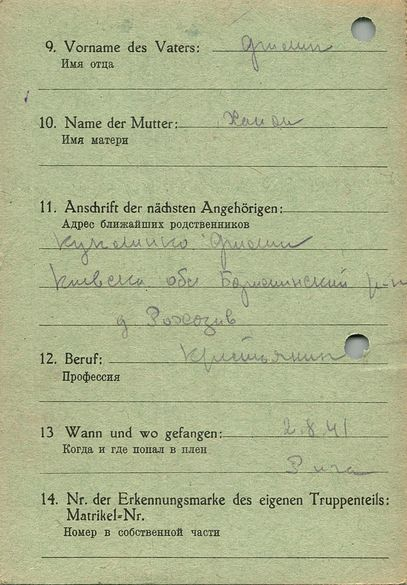 9. Vorname des Vaters:
Имя отца
10. Name der Mutter:
Имя матери
11. Anschrift der nächsten Angehörigen:
Адрес ближайших родственников
обл р-н
д Рожозив
12. Beruf: Крестьянин
Профессия
13 Wann und wo gefangen: 2.8.41
Когда и где попал в плен
Рига
14. Nr. der Erkennungsmarke des eigenen Truppenteils:
Matrikel-Nr.
Номер в собственной части